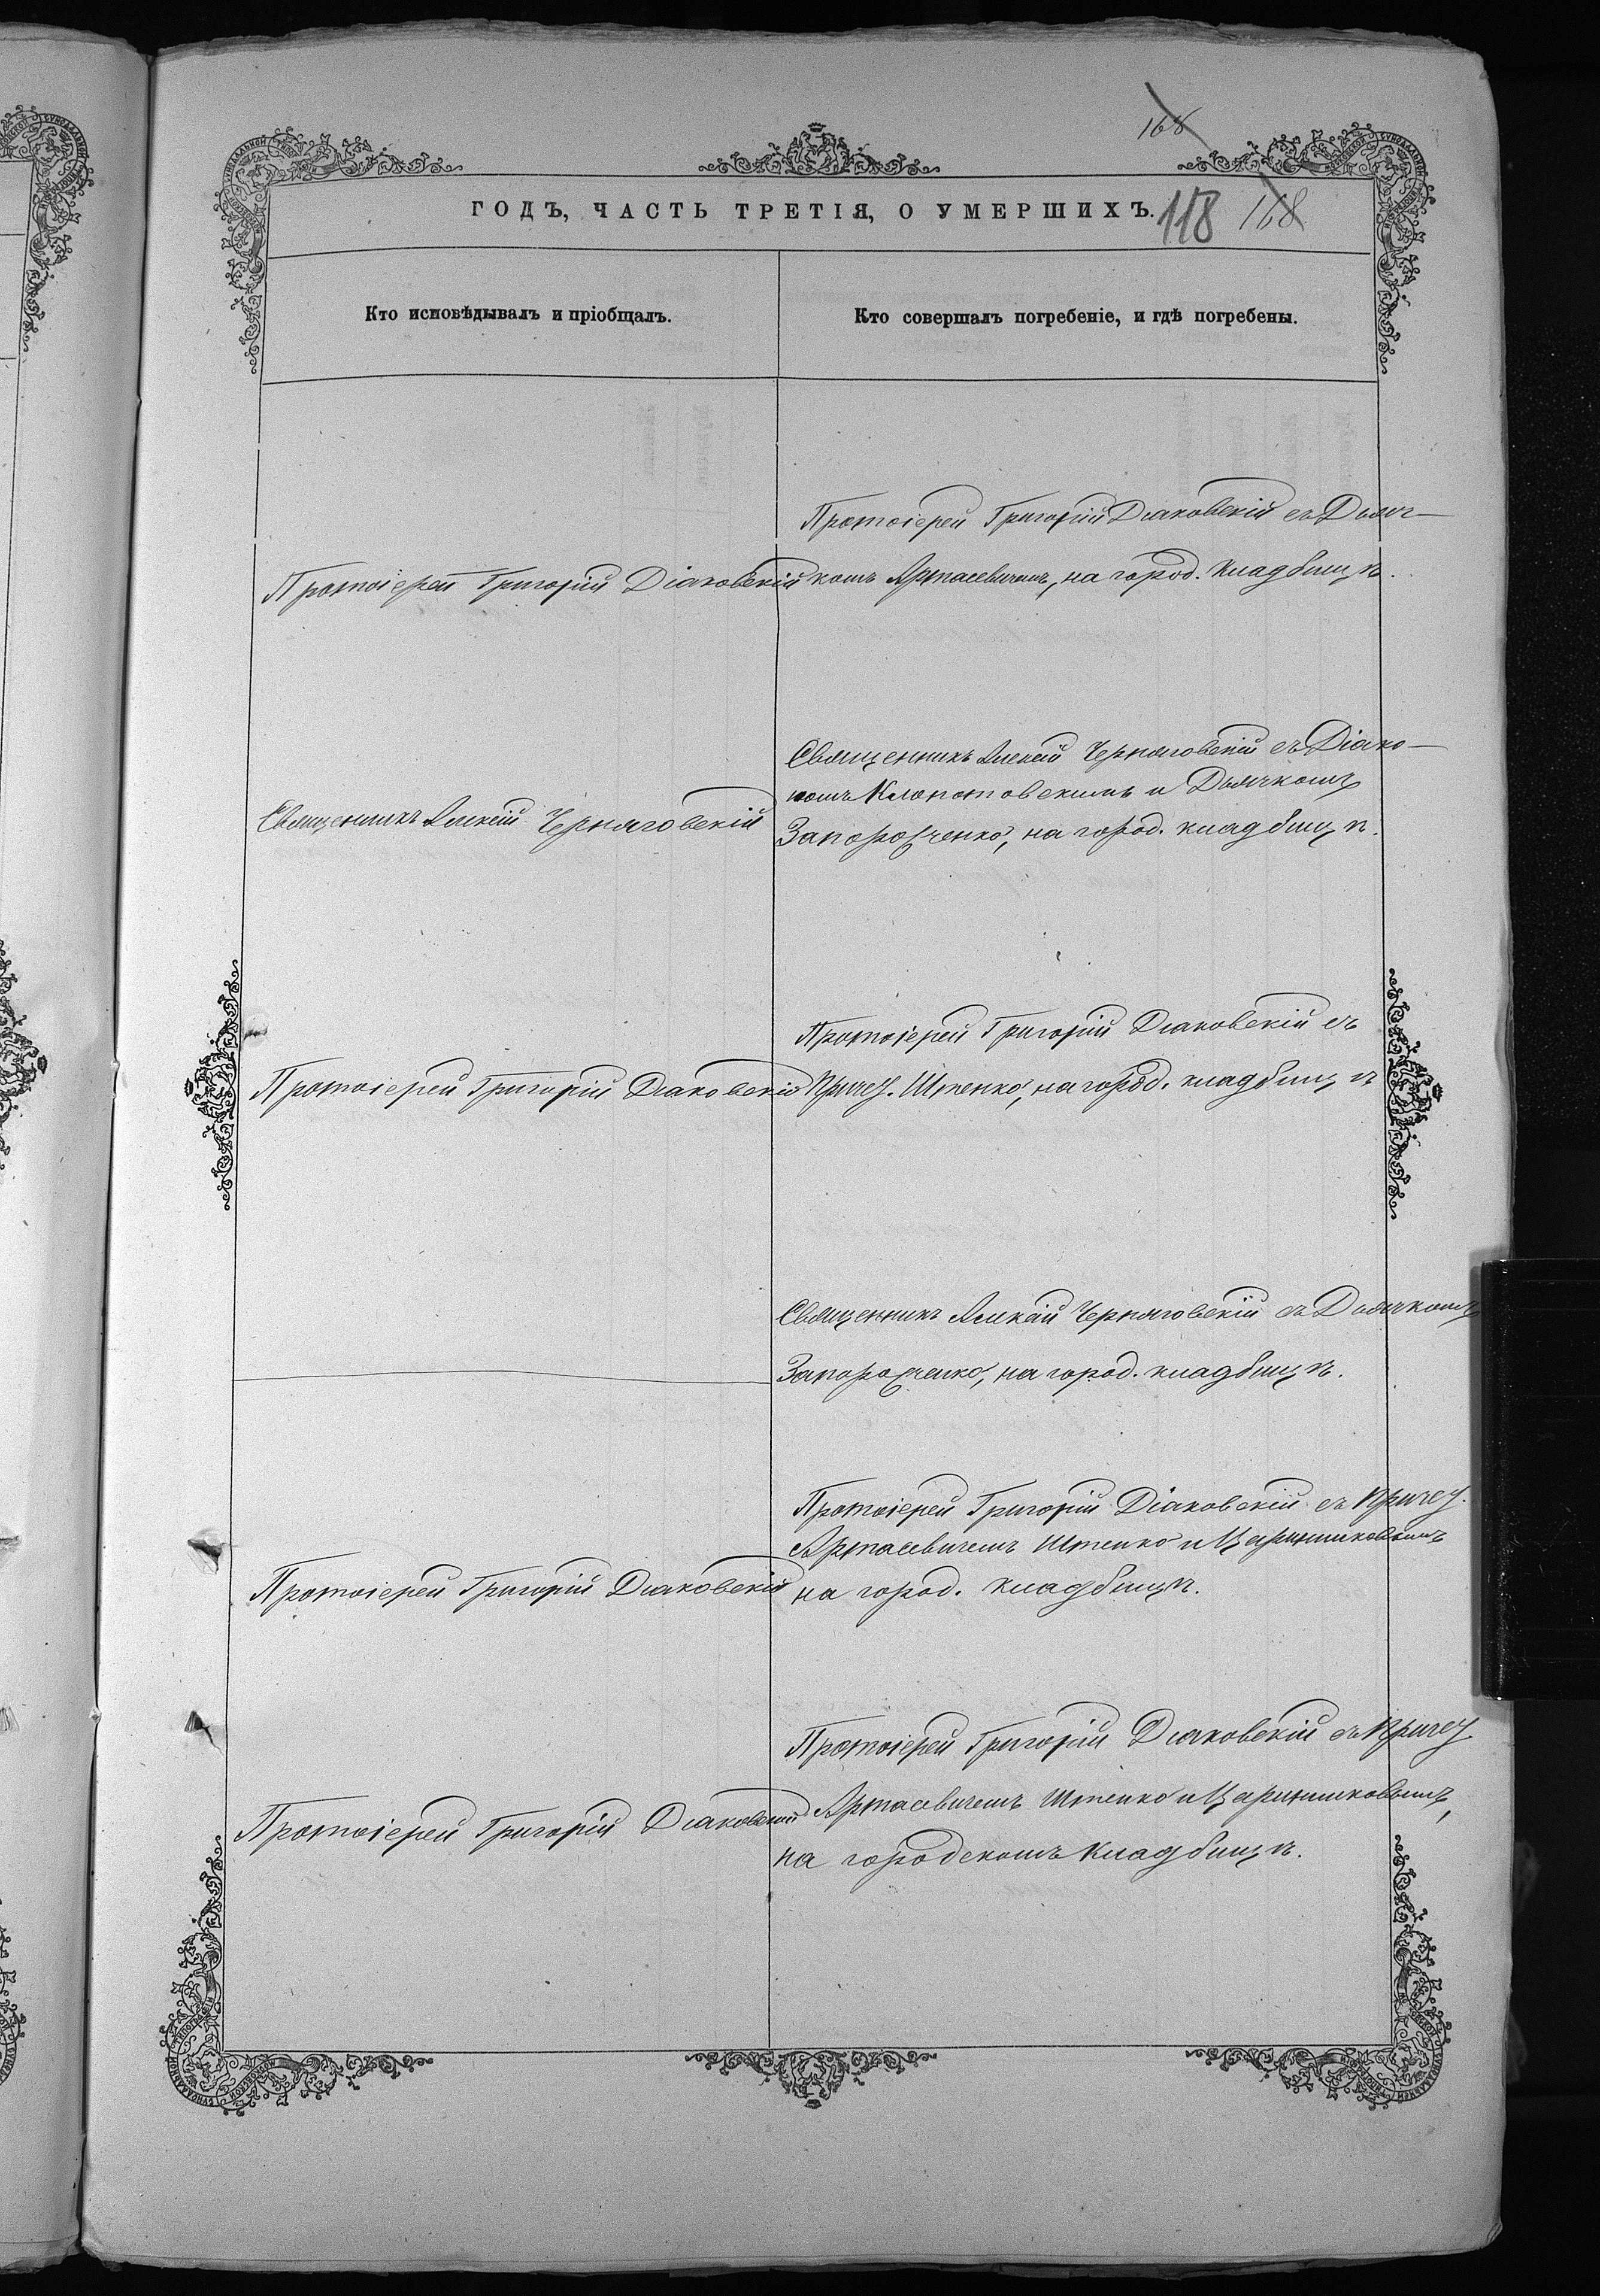 168
ГОДЪ, ЧАСТЬ ТРЕТІЯ, О УМЕРШИХЪ.
118 168
Кто исповѣдывалъ и пріобщалъ.
Кто совершалъ погребеніе, и гдѣ погребены.
Протоіерей Григорій Діаковскій
Протоіерей Григорій Діаковскій съ Дьяч-
комъ Артасевичемъ, на город. кладбищѣ.
Священникъ Алексій Черняговскій
Священникъ Алексій Черняговскій съ Діако-
номъ Клопотовскимъ и Дьячкомъ
Запорожченко, на город. кладбищѣ.
Протоіерей Григорій Діаковскій
Протоіерей Григорій Діаковскій съ
Причет. Штенко, на город. кладбищѣ
Священникъ Алексій Черняговскій съ Дьячкомъ
Запорожченко, на город. кладбищѣ.
Протоіерей Григорій Діаковскій
Протоіерей Григорій Діаковскій съ Причет.
Артасевичемъ Штенко и
на город. кладбищѣ.
Протоіерей Григорій Діаковскій
Протоіерей Григорій Діаковскій съ Причет
Артасевичемъ Штенко и
на городскомъ кладбищѣ.